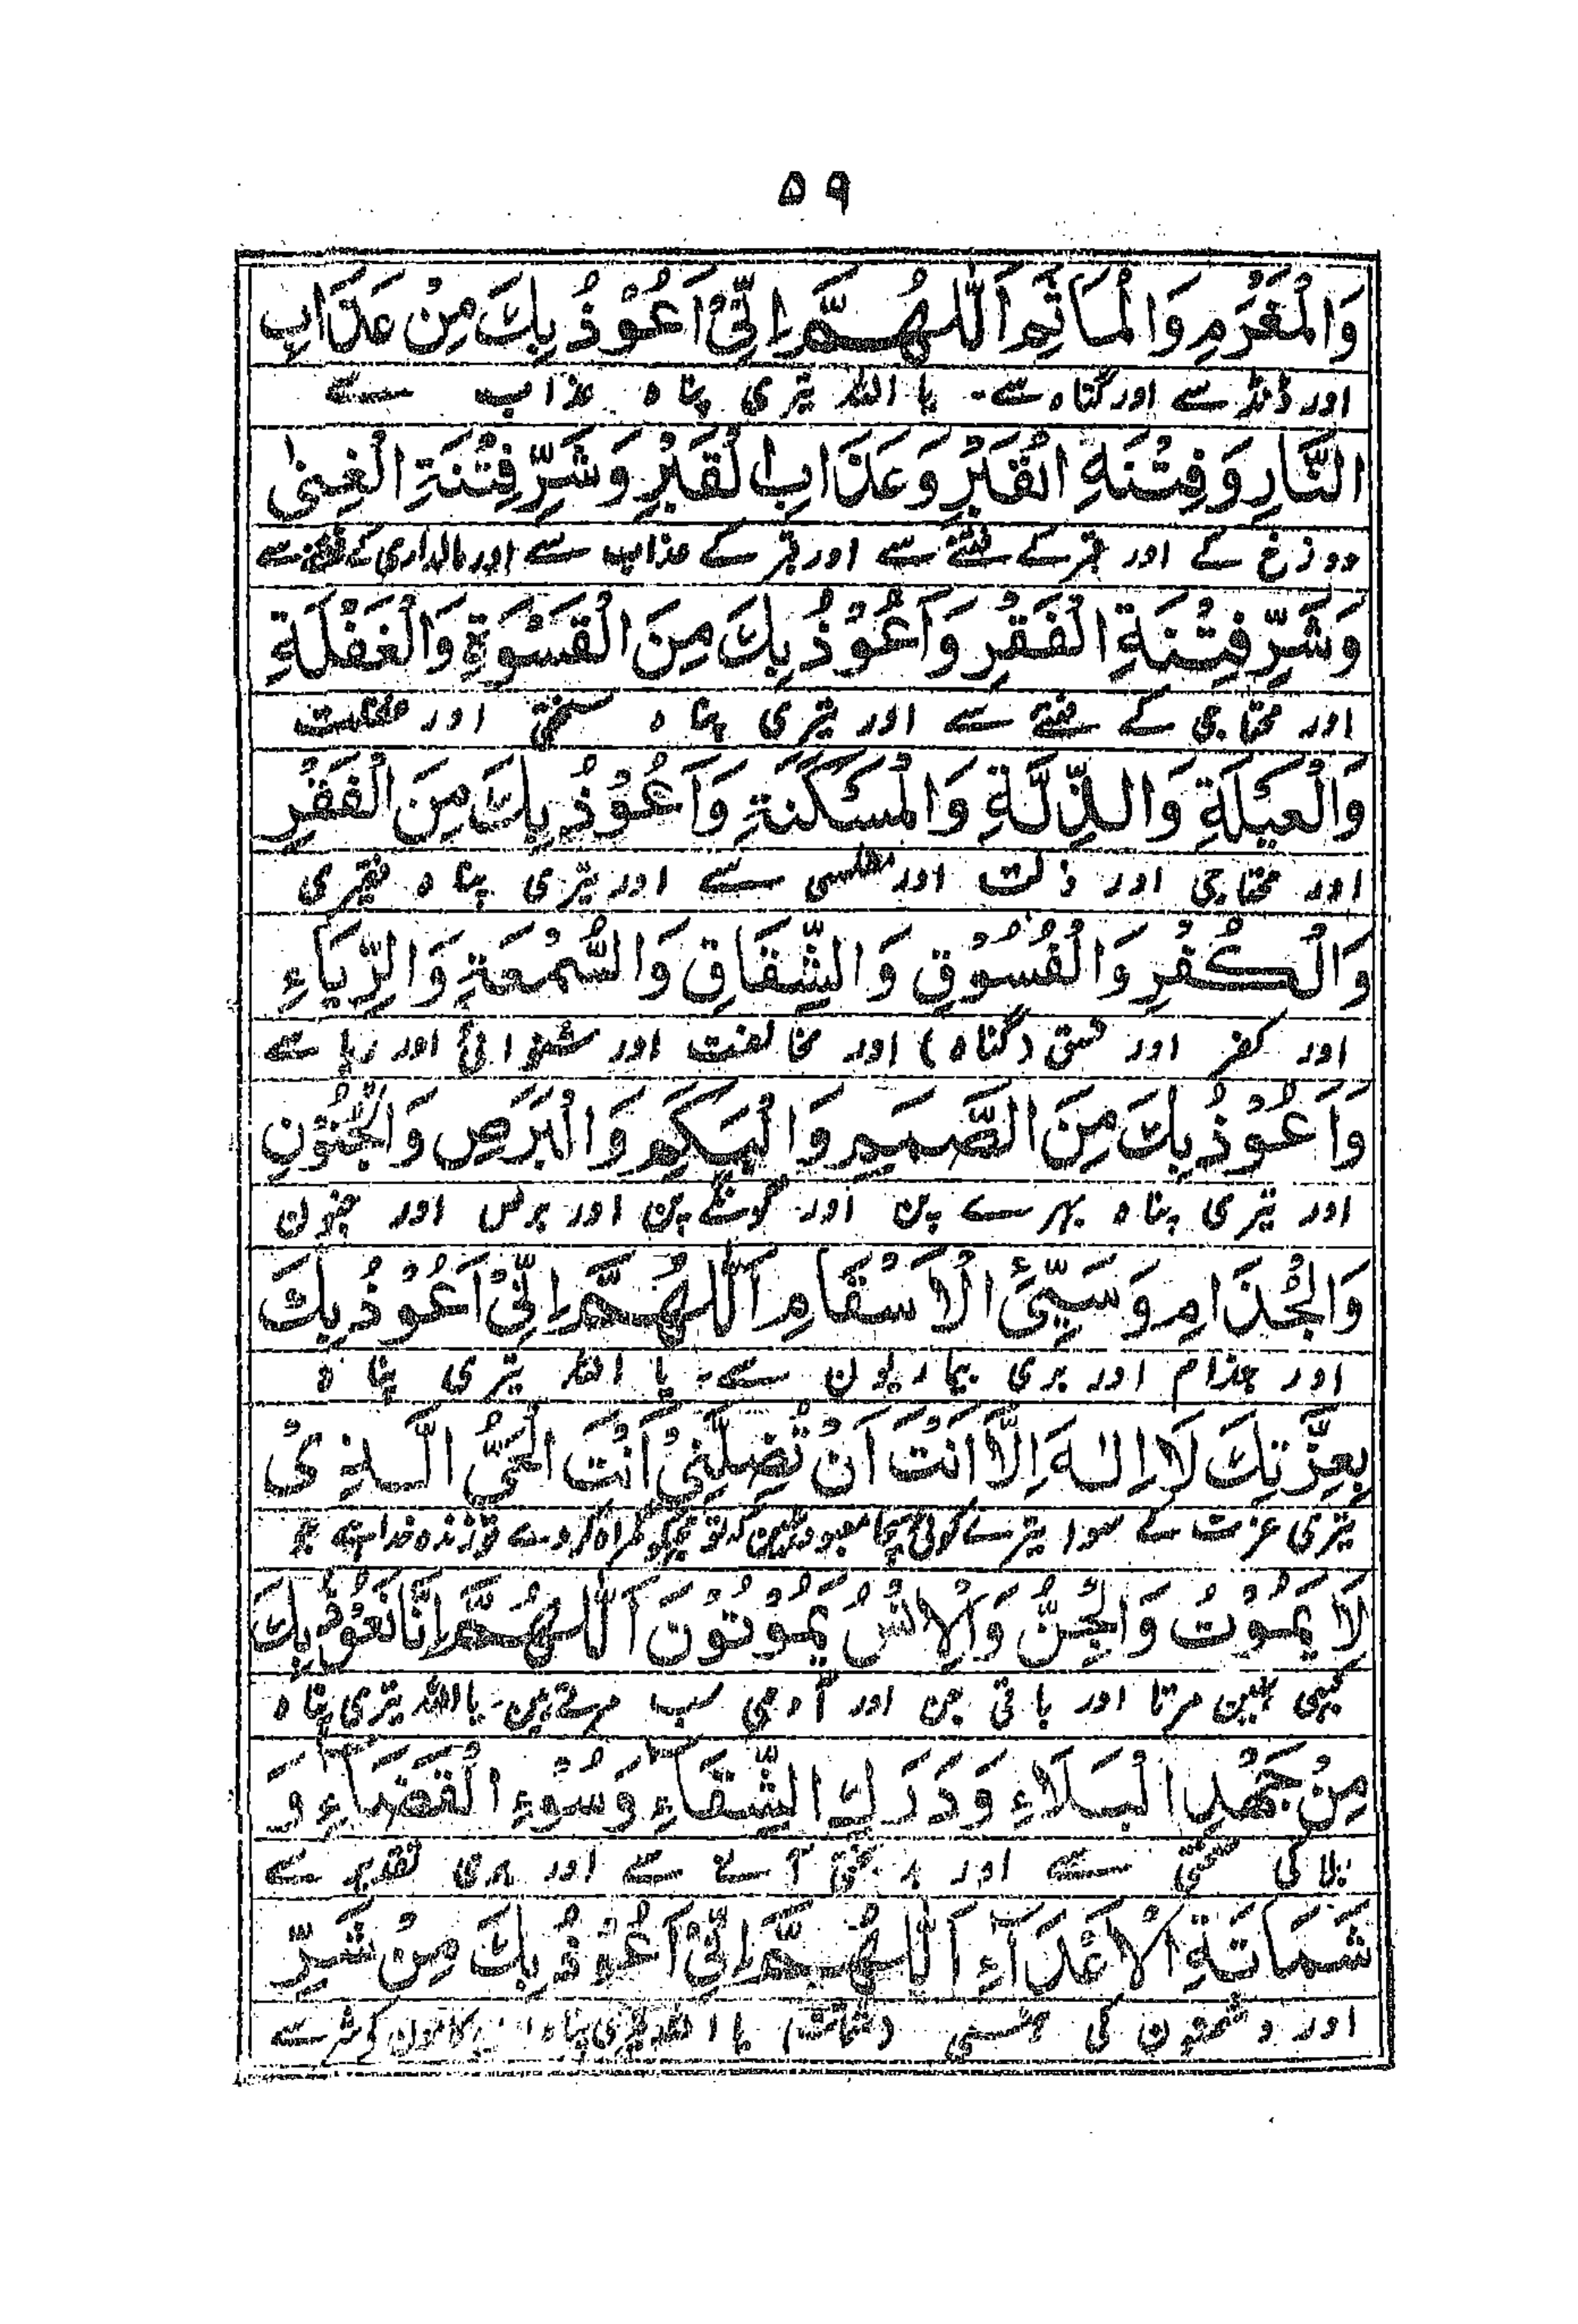 ۵۹
وَالْمَغْرَمِ وَالْمَأْثَمِ اَللّٰهُمَّ اِنِّيْ اَعُوْذُ بِكَ مِنْ عَذَابِ
اور ڈنڈ سے اور گناہ سے۔ یا اللہ تیری پناہ عذاب سے
النَّارِ وَفِتْنَةِ الْقَبْرِ وَعَذَابِ الْقَبْرِ وَشَرِّ فِتْنَةِ الْغِنٰى
دوزخ کے اور قبر کے فتنے سے اور قبر کے عذاب سے اور مالداری کے فتنہ سے
وَشَرِّ فِتْنَةِ الْفَقْرِ وَاَعُوْذُ بِكَ مِنَ الْقَسْوَةِ وَالْغَفْلَةِ
اور محتاجی کے فتنے سے اور تیری پناہ سختی اور غفلت
وَالْعَيْلَةِ وَالذِّلَّةِ وَالْمَسْكَنَةِ وَاَعُوْذُ بِكَ مِنَ الْفَقْرِ
اور محتاجی اور ذلت اور مفلسی سے اور تیری پناہ فقیری
وَالْكُفْرِ وَالْفُسُوْقِ وَالشِّقَاقِ وَالسُّمْعَةِ وَالرِّيَاءِ
اور کفر اور فسق (گناہ) اور مخالفت اور شنوائی اور ریا سے
وَاَعُوْذُ بِكَ مِنَ الصَّمَمِ وَالْبَكَمِ وَالْبَرَصِ وَالْجُنُوْنِ
اور تیری پناہ بہرے پن اور گونگے پن اور برص اور جنون
وَالْجُذَامِ وَسَيِّئِ الْاَسْقَامِ اَللّٰهُمَّ اِنِّيْ اَعُوْذُ بِكَ
اور جذام اور بری بیماریون سے۔ یا اللہ تیری پناہ
بِعِزَّتِكَ لَا اِلٰهَ اِلَّا اَنْتَ اَنْ تُضِلَّنِيْ اَنْتَ الْحَيُّ الَّذِيْ
تیری عزت کے سوا تیرے کوئی سچا معبود نہین کہ تو مجکو گمراہ کر دے تو زندہ خدا ہے جو
لَا يَمُوْتُ وَالْجِنُّ وَالْاِنْسُ يَمُوْتُوْنَ اَللّٰهُمَّ اِنَّا نَعُوْذُ بِكَ
کبھی نہین مرتا اور باقی جن اور آدمی سب مرتے ہین۔ یا اللہ تیری پناہ
مِنْ جَهْدِ الْبَلَاءِ وَدَرَكِ الشِّقَاءِ وَسُوْءِ الْقَضَاءِ وَ
بلا کی سختی سے اور بدبختی آنے سے اور بری تقدیر سے
شَمَاتَةِ الْاَعْدَآءِ اَللّٰهُمَّ اِنِّيْ اَعُوْذُ بِكَ مِنْ شَرِّ
اور دشمنون کی ہنسی (شماتت) یا اللہ تیری پناہ کامون کے شر سے